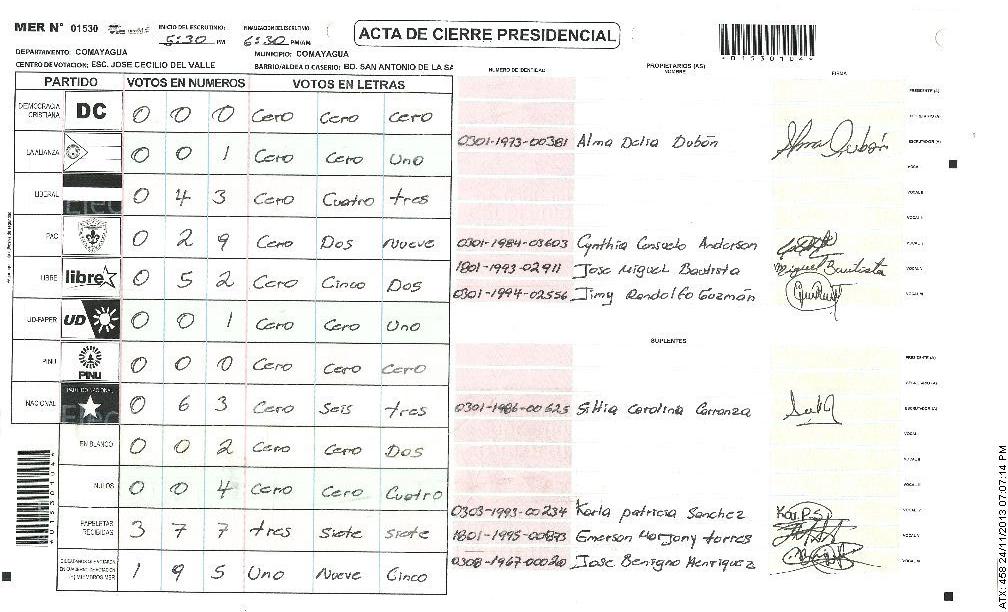 MER N° 01530
INICIO DEL ESCRUTINIO: 5:30 PM
FINALIZACION DEL ESCRUTINIO: 6:30 PM/AM
ACTA DE CIERRE PRESIDENCIAL
*01530104*
DEPARTAMENTO: COMAYAGUA
MUNICIPIO: COMAYAGUA
CENTRO DE VOTACION: ESC. JOSE CECILIO DEL VALLE
BARRIO/ALDEA O CASERIO: BO. SAN ANTONIO DE LA SA
PARTIDO VOTOS EN NUMEROS VOTOS EN LETRAS
NUMERO DE IDENTIDAD PROPIETARIOS (AS) NOMBRE FIRMA
DEMOCRACIA CRISTIANA DC 0 0 0 Cero Cero Cero
LA ALIANZA 0 0 1 Cero Cero Uno
LIBERAL 0 4 3 Cero Cuatro tres
PAC 0 2 9 Cero Dos nueve
LIBRE libre 0 5 2 Cero Cinco Dos
UD-FAPER UD 0 0 1 Cero Cero Uno
PINU PINU 0 0 0 Cero Cero Cero
NACIONAL PARTIDO NACIONAL 0 6 3 Cero Seis tres
EN BLANCO 0 0 2 Cero Cero Dos
NULOS 0 0 4 Cero Cero Cuatro
PAPELETAS RECIBIDAS 3 7 7 tres siete siete
1 9 5 Uno Nueve Cinco
PRESIDENTE (A)
0301-1973-00381 Alma Delia Dubón ESCRUTADOR (A)
VOCAL I
VOCAL II
0301-1984-03603 Cynthia Consuelo Anderson
1801-1993-02911 Jose Miguel Bautista Miguel Bautista
0301-1994-02556 Jimy Randolfo Guzmán
SUPLENTES
PRESIDENTE (A)
0301-1986-00625 Sithia Carolina Carranza ESCRUTADOR (A)
0303-1993-00234 Karla patricia Sanchez
Emerson torres
Jose Benigno Henriquez
*01530104*
ATX: 458 24/11/2013 07:07:14 PM